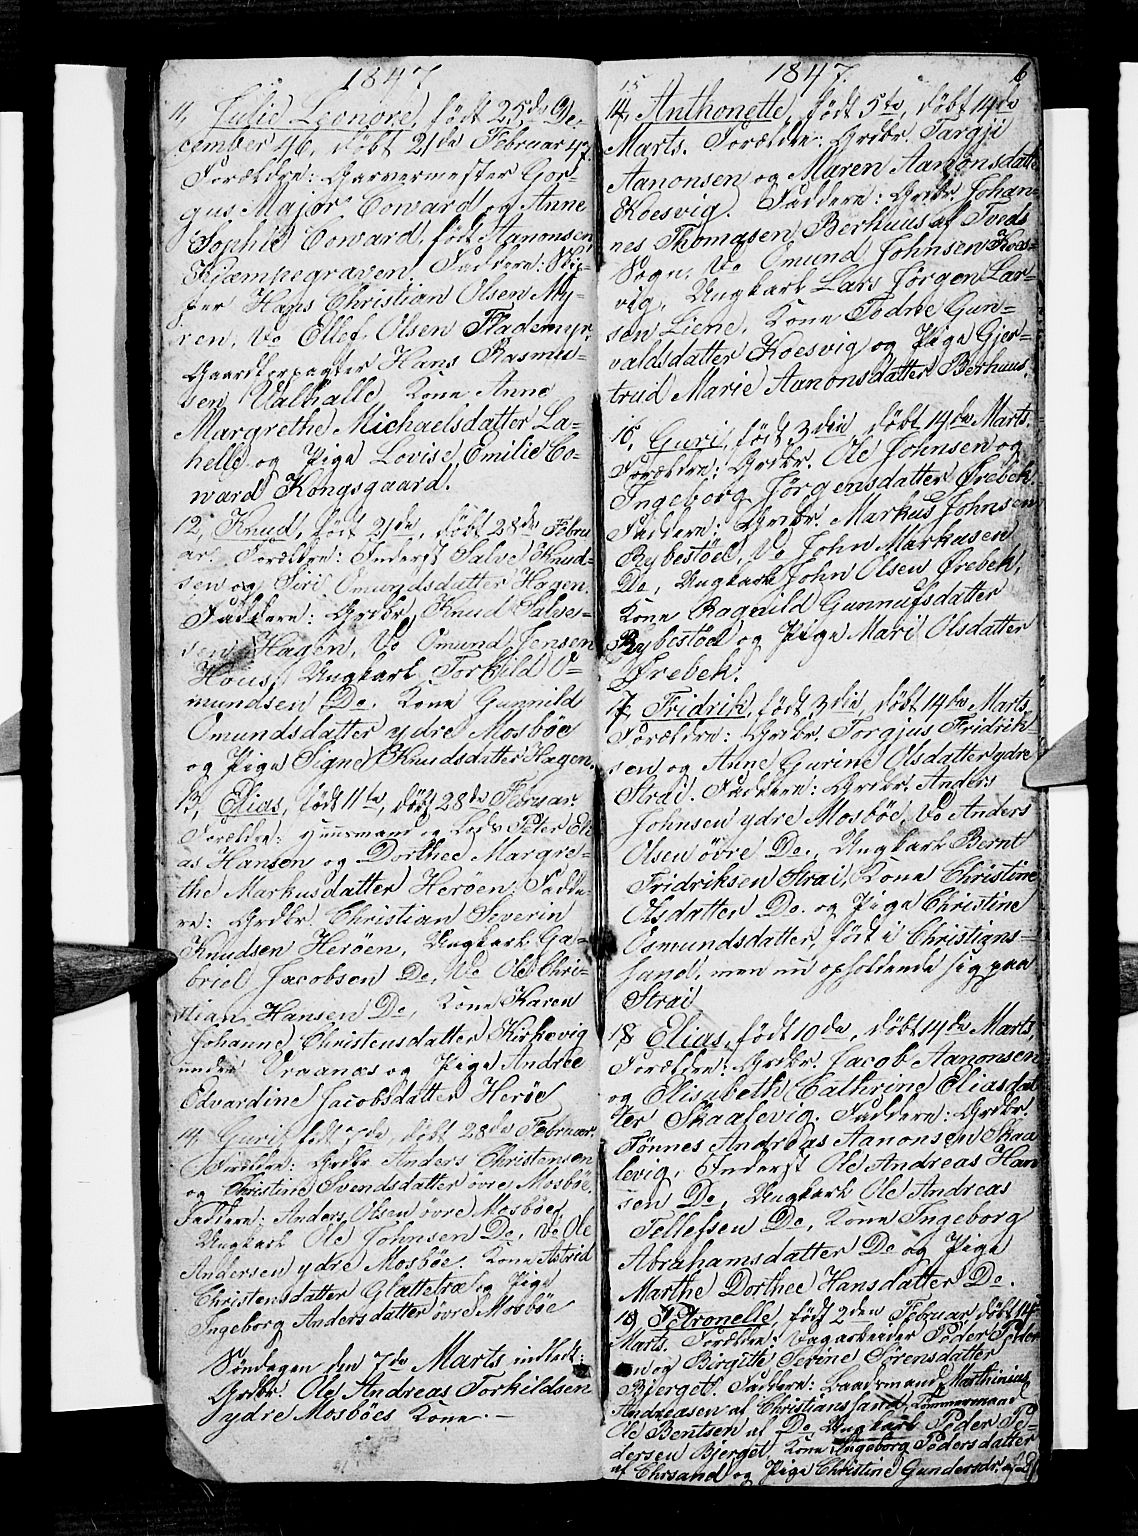 1847
11, Julie Leonore, født 25de De-
cember 46, døbt 21de Februar 47.
Forældre: Garvermester Gor-
gus Major Coward og Anne
Sophie Coward, født Aanonsen
Kjæmpegraven. Faddere: Skip-
per Hans Christian Olsen My-
ren, Do Ellef Olsen Flademyr,
Gaardforpagter Hans Rasmu-
sen Valhalle, Kone Anne
Margrethe Michaelsdatter La-
helle og Pige Lovise Emilie Co-
ward Kongsgaard.
12, Knud, født 21de, døbt 28de Febru
ar. Forældre: Inderst Salve Knud-
sen og Siri Omundsdatter Hagen.
Faddere: Grdbr. Knud Salves-
sen Hagen, Do Omund Jensen
Hous, Ungkarl Torkild O-
mundsen Do. Kone Gunnild
Omundsdatter ydre Mosbøe
og Pige Signe Knudsdatter Hagen.
13, Elias, født 11te, døbt 28de Februar.
Forældre: Huusmand og Lods Peter Eli
as Hansen og Dorthee Margre-
the Markusdatter Herøen. Fadde-
re: Grdbr Christian Severin
Knudsen Herøen, Ungkarl Ga-
briel Jacobsen Do, Do Ole Chri-
stian Hansen Do, Kone Karen
Johanne Christensdatter Kirkevig
under Vraanæs og Pige Andree
Edvardine Jacobsdatter Herøe
14, Guri, født 7de, døbt 28de Februar.
Forældre: Grdbr Anders Christensen
og Christine Svendsdatter øvre Mosbøe.
Faddere: Anders Olsen øvre Mosbøe,
Ungkarl Ole Johnsen Do, Do Ole
Andersen ydre Mosbøe. Kone Astrid
Christensdatter Glattetræ og Pige
Ingeborg Andersdatter øvre Mosbøe
Søndagen den 7de Marts indledt:
Grdbr. Ole Andreas Torkildsen
ydre Mosbøes Kone. —
1847. 6
15
14, Anthonette, født 5te, døbt 14de
Marts. Forældre: Grdbr. Targji
Aanonsen og Maren Aanonsdatter
Koesvig. Faddere: Grdbr. Johan-
nes Thomasen Berhuus af Tveds
Sogn, Do Omund Johnsen Koes-
vig, Ungkarl Lars Jørgen Lar-
sen Liene, Kone Todne Gun-
valdsdatter Koesvig og Pige Gjer-
trud Marie Aanonsdatter Berhuus.
16, Guri, født 3die, døbt 14de Marts.
Forældre: Grdbr. Ole Johnsen og
Ingeborg Jørgensdatter Ørebek.
Faddere: Grdbr. Markus Johnsen
Rybestøel, Do John Markusen
Do, Ungkarl John Olsen Ørebek,
Kone Ragnild Gunnufsdatter
Rybestøel og Pige Mari Olsdatter
Ørebek.
17, Fridrik, født 3die, døbt 14de Marts.
Forældre: Grdbr. Torgjus Fridrik-
sen og Anne Gurine Olsdatter ydre
Strai. Faddere: Grdbr. Anders
Johnsen ydre Mosbøe, Do Anders
Olsen øvre Do, Ungkarl Bernt
Fridriksen Strai, Kone Christine
Olsdatter Do. og Pige Christine
Osmundsdatter, født i Christians-
sand, men nu opholdende sig paa
Strai
18, Elias, født 10de, døbt 14de Marts,
Forældre: Grdbr. Jacob Aanonsen
og Elisabeth Cathrine Eliasdat
ter Skaalevig. Faddere: Grdbr.
Tønnes Andreas Aanonsen Skaa
levig, Inderst Ole Andreas Han
sen Do, Ungkarl Ole Andreas
Tellefsen Do, Kone Ingeborg
Abrahamsdatter Do og Pige
Marthe Dorthee Hansdatter Do.
19, Petronelle, født 2den Februar, døbt 14de
Marts. Forældre: Vegarbeider Peder Peder
sen og Birgitte Serine Sørensdatter
Bjerget. Faddere: Baadsmand Marthinus
Andreasen af Christianssand, Tømmermand
Ole Bentsen af Do, Ungkarl Peder Pe-
dersen Bjerget, Kone Ingeborg Pedersdatter
af Chrsand og Pige Christine Gundersdr. af Do